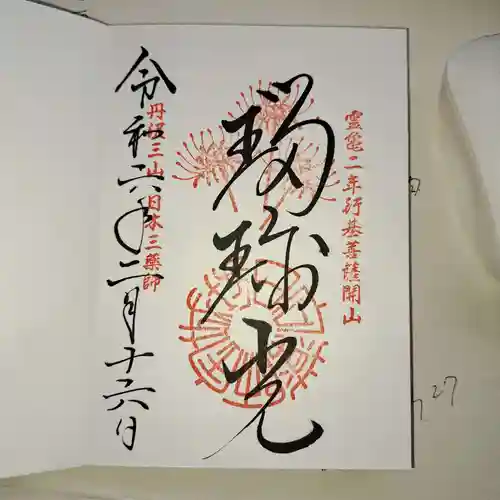 霊亀二年行基菩薩開山
瑠璃光
丹沢三山 日本三薬師
令和六年二月十六日
27